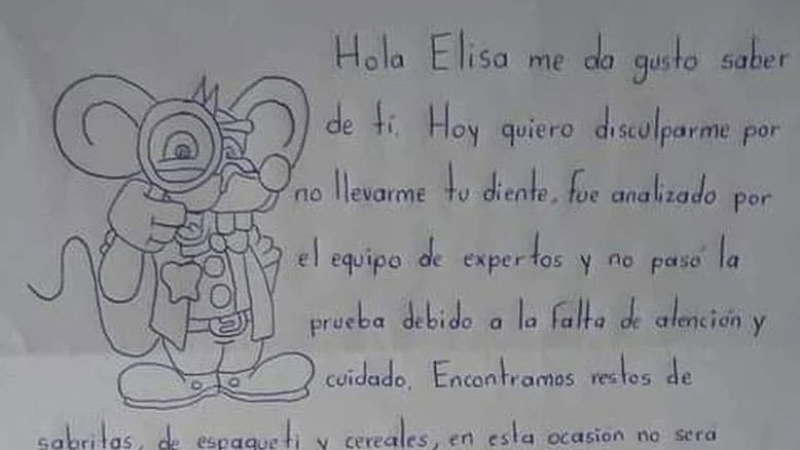 Hola Elisa me da gusto saber
de ti. Hoy quiero disculparme por
no llevarme tu diente, fue analizado por
el equipo de expertos y no pasó la
prueba debido a la falta de atención y
cuidado. Encontramos restos de
sabritas, de espagueti y cereales, en esta ocasión no será